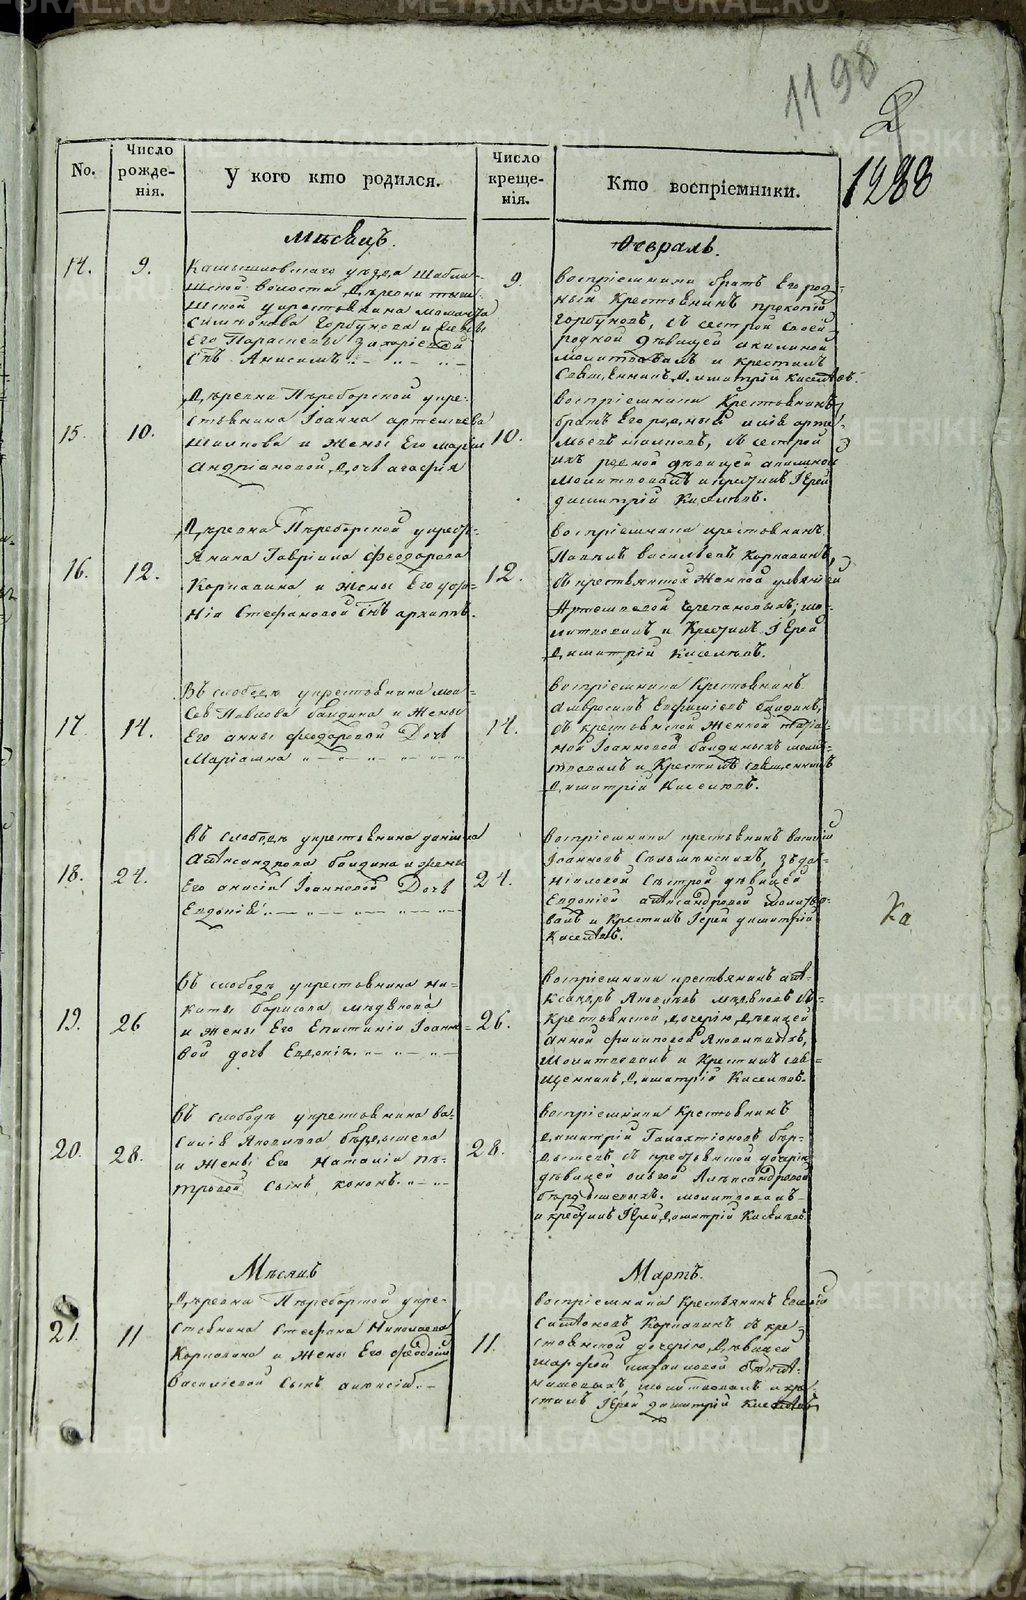 1198
2
1288
No.
Число рожде-
нія.
У кого кто родился.
Число креще-
нія.
Кто воспріемники.
Мѣсяцъ.
Февраль.
14.
9.
Камышловскаго уѣзда
шской волости Деревни
шской укрестьянина
Симионова Горбунова и жены
Его Параскевы Захаріевой
Сынъ Анисимъ
9.
воспріемники братъ Его род-
ный Крестьянинъ прокопій
Горбуновъ, съ сестрой своей
родной дѣвицей акилиной
молитвовалъ и крестилъ
Священникъ Димитрій Киселевъ.
15.
10.
Деревни Переборской укре-
стьянина Іоанна артемьева
Шипкова и жены Его Маріи
Андріановой Дочь агафія
10.
воспріемники Крестьянинъ
братъ Его родный
съ сестрой
ихъ родной дѣвицей акилиной
молитвовалъ и крестилъ Іерей
димитрій Киселевъ.
16.
12.
Деревни Переборской укресть-
янина Гавріила Феодорова
Корнавина и жены Его
Стефановой Сынъ архиппъ.
12.
воспріемники крестьянинъ
Павелъ васильевъ Корнавинъ,
съ крестьянской женкой
мо-
литвовалъ и Крестилъ Іерей
Димитрій Киселевъ.
17
14.
Въ слободѣ укрестьянина мои-
сея Павлова бандина и жены
Его анны феодоровой Дочь
Маріамна
14.
воспріемники Крестьянинъ
Амвросій Евфиміевъ бандинъ,
съ крестьянской женкой татіа-
ной Іоанновой бандиныхъ моли-
твовалъ и Крестилъ священникъ
Димитрій Киселевъ.
18.
24.
Въ слободѣ укрестьянина даніила
Александрова бандина и жены
Его анисіи Іоанновой Дочь
Евдокія
24.
воспріемники крестьянинъ василій
Іоанновъ съ да-
ніиловой сестрой дѣвицей
Евдокіей александровой молитво-
валъ и Крестилъ Іерей димитрій
Киселевъ.
Ка
19.
26
Въ слободѣ укрестьянина ни-
киты борисова
и жены Его Епистиміи Іоанно-
вой дочь Евдокія
26.
воспріемники крестьянинъ але-
ксандръ Яковлевъ съ
Крестьянской дочерію Дѣвицей
анной филиповой Яковлевыхъ,
молитвовалъ и Крестилъ свя-
щенникъ Димитрій Киселевъ.
20.
28.
Въ слободѣ укрестьянина ва-
силія Яковлева бердышева
и жены Его Наталіи пе-
тровой Сынъ кононъ.
28.
воспріемники Крестьянинъ
димитрій Галактіоновъ бер-
дышевъ съ крестьянской дочерію
дѣвицей ольгой Александровой
бердышевыхъ. молитвовалъ
и крестилъ Іерей Димитрій Киселевъ.
Мѣсяцъ
Мартъ.
21.
11
Деревни Переборской укре-
стьянина Стефана Николаева
Корнавина и жены Его феодосіи
Василіевой Сынъ алексій
11.
воспріемники Крестьянинъ
Симеоновъ Корнавинъ съ кре-
стьянской дочерію Дѣвицей
марфой михаиловой
молитвовалъ и кре-
стилъ Іерей димитрій Киселевъ